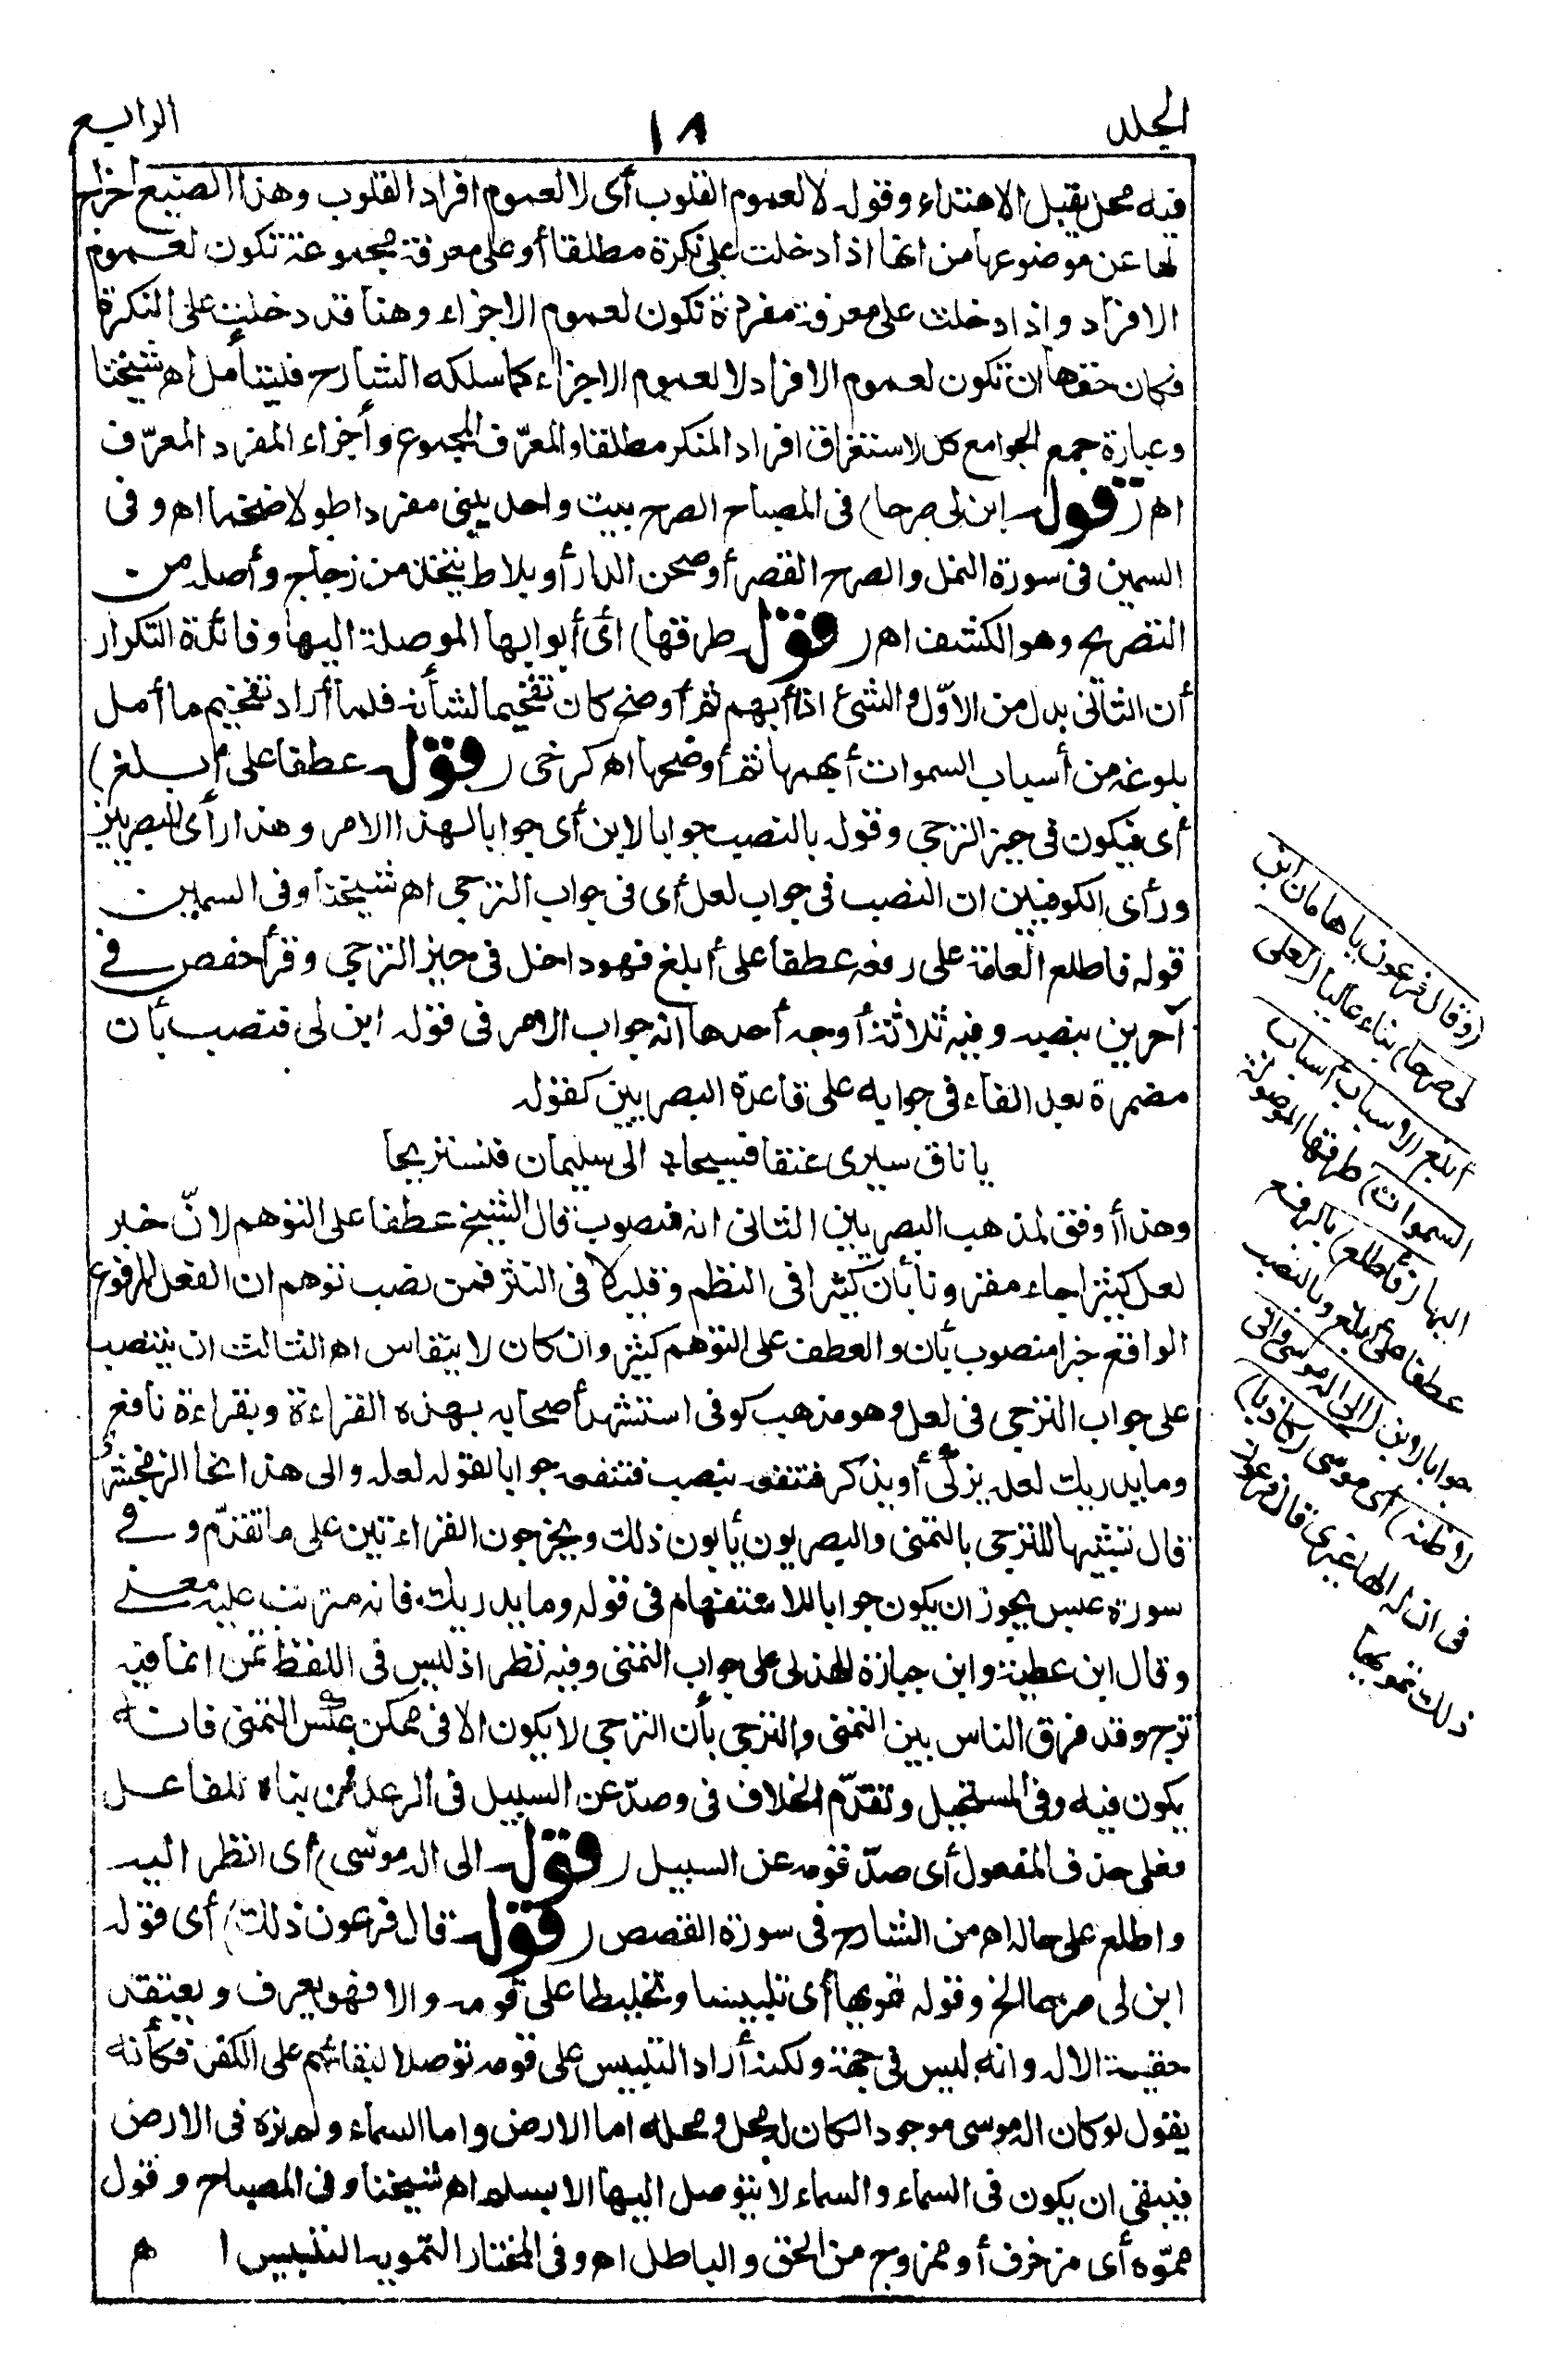 الجلد
١٨
الرابع
فيه محل يقبل الاهتداء وقوله لا لعموم القلوب أى لا لعموم افراد القلوب وهذا الصنيع اخراج
لها عن موضوعها من انها اذا دخلت على نكرة مطلقا أو على معرفة مجموعة تكون لعموم
الافراد واذا دخلت على معرفة مفردة تكون لعموم الاجزاء وهنا قد دخلت على النكرة
فكان حقها ان تكون لعموم الافراد لا لعموم الاجزاء كما سلكه الشارح فليتأمل اه شيخنا
وعبارة جمع الجوامع كل لاستغراق افراد المنكر مطلقا والمعرّف المجموع وأجزاء المفرد المعرّف
اه (قوله ابن لى صرحا) فى المصباح الصرح بيت واحد يبنى مفردا طولا ضخما اه وفى
السمين فى سورة النمل والصرح القصر أو صحن الدار أو بلاط يتخذ من زجاج وأصله من
التصريح وهو الكشف اه (قوله طرقها) أى أبوابها الموصلة اليها وفائدة التكرار
أن الثانى بدل من الاوّل والشئ اذا أبهم ثم أوضح كان تفخيما لشأنه فلما أراد تفخيم ما أمل
بلوغه من أسباب السموات أبهمها ثم أوضحها اه كرخى (قوله عطفا على أبلغ)
أى فيكون فى حيز الترجى وقوله بالنصب جوابا لابن أى جوابا لهذا الامر وهذا رأى البصريين
ورأى الكوفيين ان النصب فى جواب لعل أى فى جواب الترجى اه شيخنا وفى السمين
قوله فاطلع العامة على رفعه عطفا على أبلغ فهو داخل فى حيز الترجى وقرأ حفص فى
آخرين بنصبه وفيه ثلاثة أوجه أحدها انه جواب الامر فى قوله ابن لى فنصب بأن
مضمرة بعد الفاء فى جوابه على قاعدة البصريين كقوله
يا ناق سيرى عنقا فسيحا * الى سليمان فنستريحا
وهذا أوفق لمذهب البصريين الثانى انه منصوب قال الشيخ عطفا على التوهم لانّ خبر
لعل كثيرا جاء مقرونا بأن كثيرا فى النظم وقليلا فى النثر فمن نصب توهم ان الفعل المرفوع
الواقع خبرا منصوب بأن والعطف على التوهم كثير وان كان لا ينقاس اه الثالث ان ينتصب
على جواب الترجى فى لعل وهو مذهب كوفى استشهد أصحابه بهذه القراءة وبقراءة نافع
وما يدريك لعله يزكّى أو يذكر فتنفعه بنصب فتنفعه جوابا لقوله لعله والى هذا نحا الزمخشرى
قال تشبيها للترجى بالتمنى والبصريون يأبون ذلك ويخرجون القراءتين على ما تقدّم وفى
سورة عبس يجوز ان يكون جوابا للاستفهام فى قوله وما يدريك فانه مترتب عليه معنى
وقال ابن عطية وابن جبارة الهذلى على جواب التمنى وفيه نظر اذ ليس فى اللفظ تمن انما فيه
ترج وقد فرق الناس بين التمنى والترجى بأن الترجى لا يكون الا فى ممكن عكس التمنى فانه
يكون فيه وفى المستحيل وتقدّم الخلاف فى وصدّ عن السبيل فى الرعد فمن بناه للفاعل
فعلى حذف المفعول أى صدّ قومه عن السبيل (قوله الى اله موسى) أى انظر اليه
واطلع على حاله اه من الشارح فى سورة القصص (قوله قال فرعون ذلك) أى قوله
ابن لى صرحا الخ وقوله تمويها أى تلبيسا وتخليطا على قومه والا فهو يعرف ويعتقد
حقيقة الاله وانه ليس فى جهة ولكنه أراد التلبيس على قومه توصلا لبقائهم على الكفر فكأنه
يقول لو كان اله موسى موجودا لكان له محل ومحله اما الارض واما السماء ولم نره فى الارض
فيبقى ان يكون فى السماء والسماء لا يتوصل اليها الا بسلم اه شيخنا وفى المصباح وقول
مموّه أى مزخرف أو ممزوج من الحق والباطل اه وفى المختار التمويه التلبيس اه
(وقال فرعون يا هامان ابن
لى صرحا) بناء عاليا (لعلى
أبلغ الاسباب أسباب
السموات) طرقها الموصلة
اليها (فأطلع) بالرفع
عطفا على أبلغ وبالنصب
جوابا لابن (الى اله موسى وانى
لاظنه) أى موسى (كاذبا)
فى ان له الها غيرى قال فرعون
ذلك تمويها